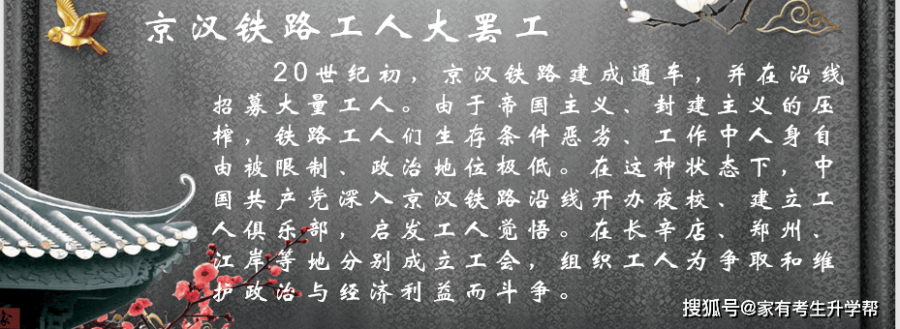 京汉铁路工人大罢工
20世纪初，京汉铁路建成通车，并在沿线
招募大量工人。由于帝国主义、封建主义的压
榨，铁路工人们生存条件恶劣、工作中人身自
由被限制、政治地位极低。在这种状态下，中
国共产党深入京汉铁路沿线开办夜校、建立工
人俱乐部，启发工人觉悟。在长辛店、郑州、
江岸等地分别成立工会，组织工人为争取和维
护政治与经济利益而斗争。
搜狐号@家有考生升学帮